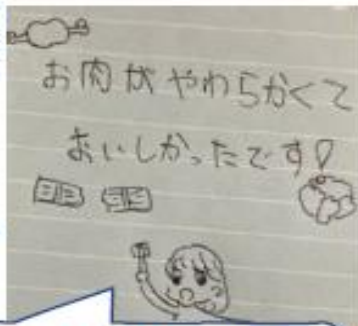 お肉がやわらかくて
おいしかったです!